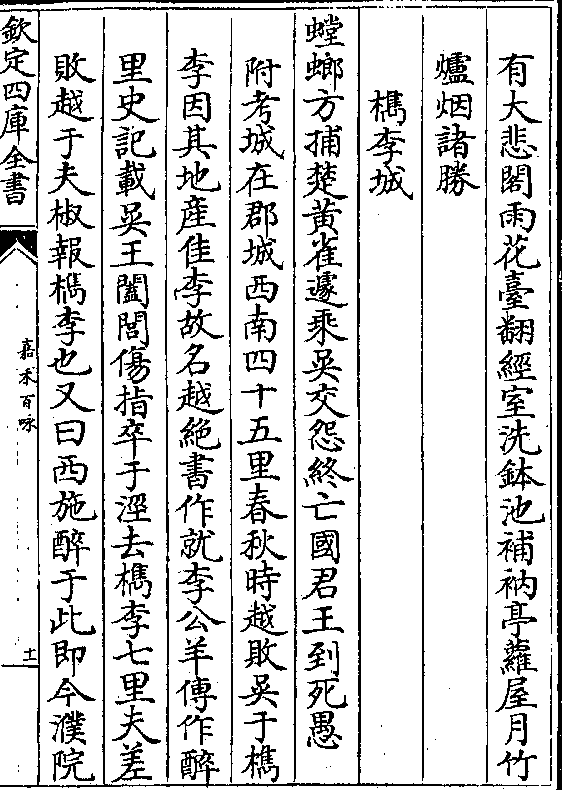 有大悲閣雨花臺翻經室洗鉢池補衲亭蘿屋月竹
爐烟諸勝
檇李城
螳螂方捕楚黄雀遽乘吳交怨終亡國君王到死愚
附考城在郡城西南四十五里春秋時越敗吳于檇
李因其地產佳李故名越絶書作就李公羊傳作醉
里史記載吳王闔閭傷指卒于涇去檇李七里夫差
敗越于夫椒報檇李也又曰西施醉于此即今濮院
欽定四庫全書
嘉禾百咏
十一